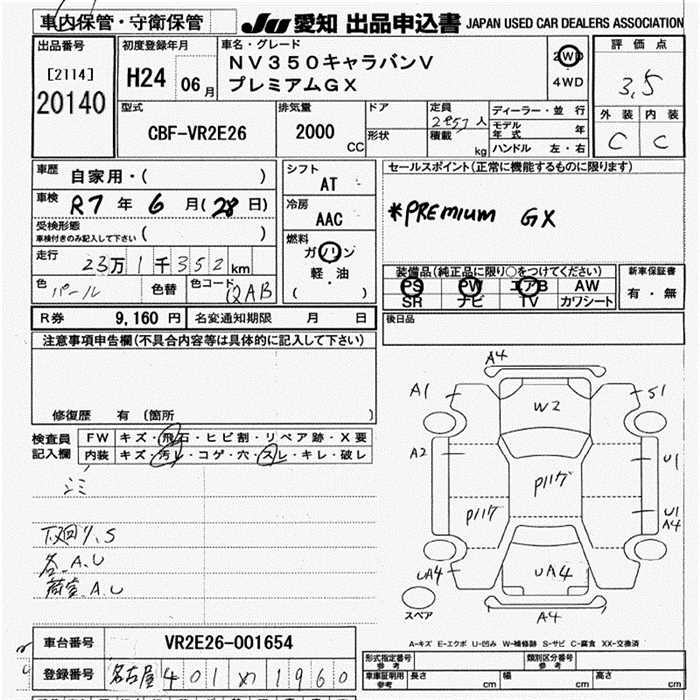 車内保管・守衛保管
JU 愛知 出品申込書 JAPAN USED CAR DEALERS ASSOCIATION
出品番号
[2114]
20140
初度登録年月
H24 06月
車名・グレード
NV350キャラバンV
プレミアムGX
2WD
4WD
評価点
3.5
外装 内装
C C
型式
CBF-VR2E26
排気量
2000 CC
ドア
形状
定員 人
積載 kg
ディーラー・並行
モデル年式 年
ハンドル 左・右
車歴
自家用・( )
車検
R7年 6月(28日)
受検形態
車検付きのみ記入して下さい ( )
走行
23万1千352km
色
パール
色替
色コード
QAB
シフト
AT
冷房
AAC
燃料
ガソリン
軽・油
( )
セールスポイント(正常に機能するものに限ります)
*PREMIUM GX
装備品(純正品に限り○をつけてください)
PS PW エアB AW
SR ナビ TV カワシート
新車保証書
有・無
R券 9,160円 名変通知期限 月 日
後日品
注意事項申告欄(不具合内容等は具体的に記入して下さい)
修復歴 有(箇所 )
検査員記入欄
FW キズ・飛石・ヒビ割・リペア跡・X要
内装 キズ・汚レ・コゲ・穴・スレ・キレ・破レ
シミ
下回り、S
各、A、U
荷室、A、U
A4
A1
W2
S1
A2
U1
P117
P117
U1
A4
UA4
UA4
A4
スペア
A-キズ E-エクボ U-凹み W-補修跡 S-サビ C-腐食 XX-交換済
車台番号 VR2E26-001654
登録番号 名古屋 401 め 1960
形式指定番号
参考
類別区分番号
参考
車庫証明用
参考
長さ cm
幅 cm
高さ cm